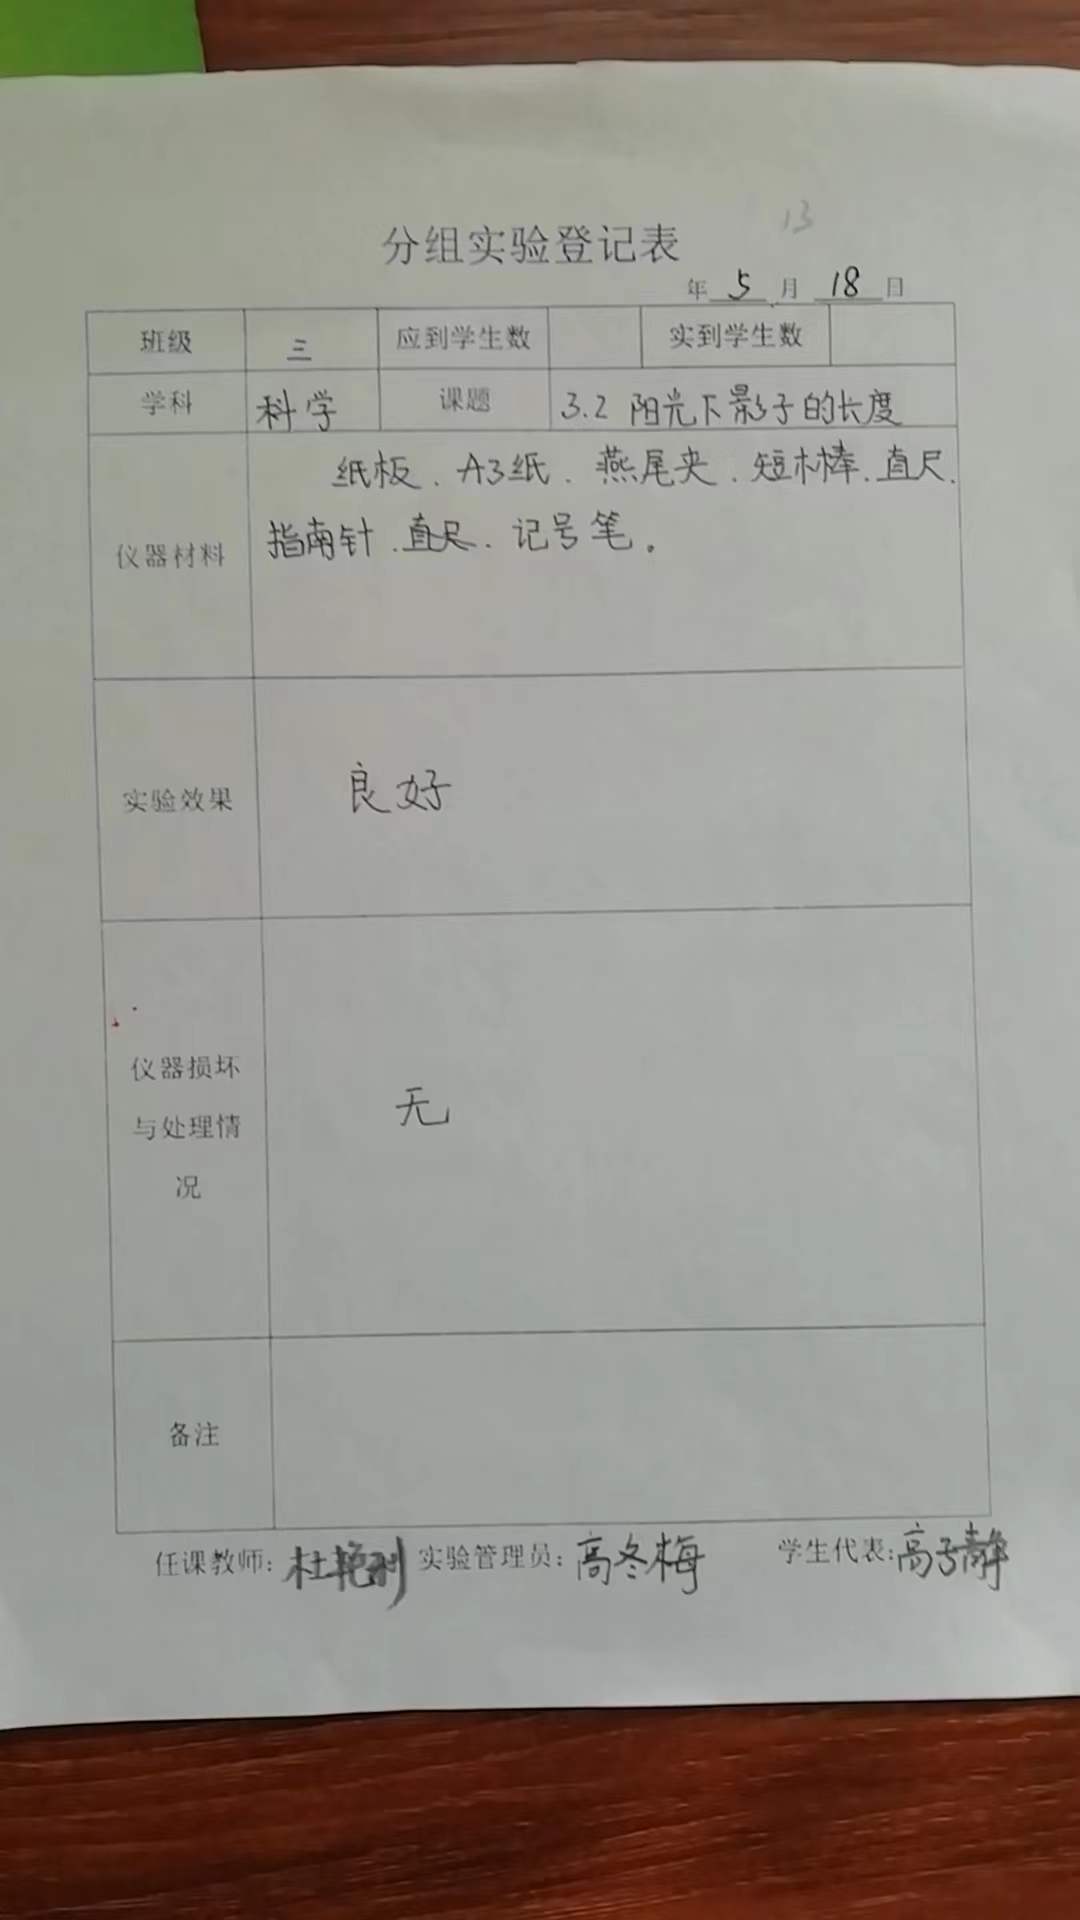 13
分组实验登记表
年 5 月 18 日
班级 三 应到学生数 实到学生数
学科 科学 课题 3.2 阳光下影子的长度
仪器材料
纸板、A3纸、燕尾夹、短木棒、直尺、
指南针、直尺、记号笔。
实验效果 良好
仪器损坏
与处理情
况
无
备注
任课教师: 杜艳利 实验管理员: 高冬梅 学生代表: 高子静